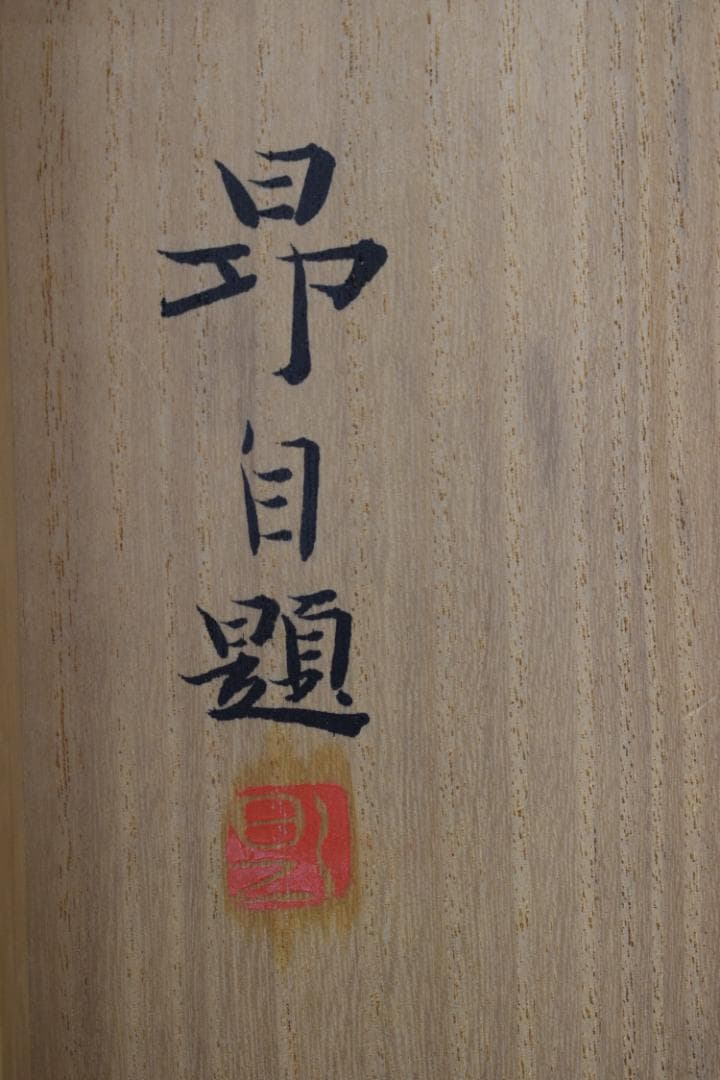 昂自題